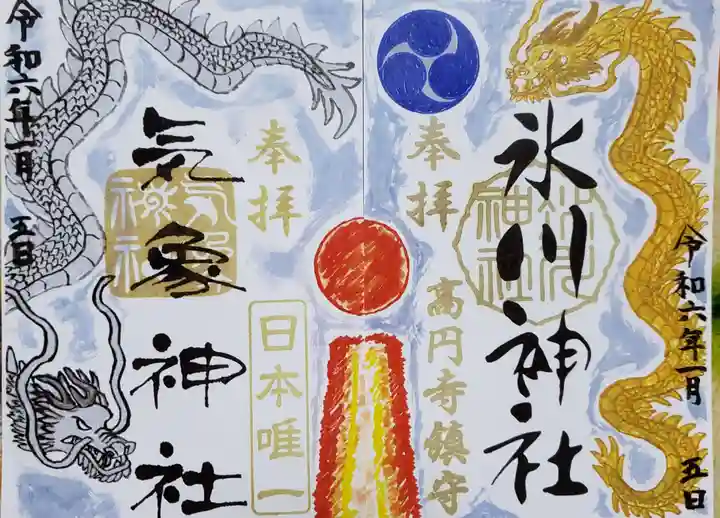 氷川神社
奉拝
高円寺鎮守
令和六年一月 五日
気象神社
奉拝
日本唯一
令和六年一月 五日
氷川神社
気象神社